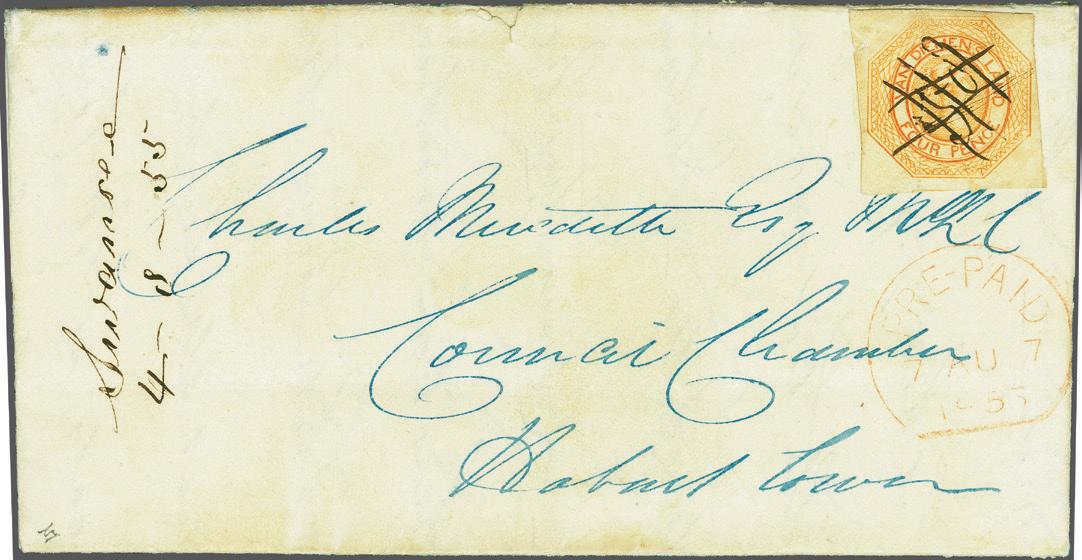 Swansea
4 - 8 - 55
VAN DIEMEN'S LAND
FOUR PENCE
Charles Meredith Esq MLC
Council Chamber
Hobart Town
PRE-PAID
7 AU 7
1855